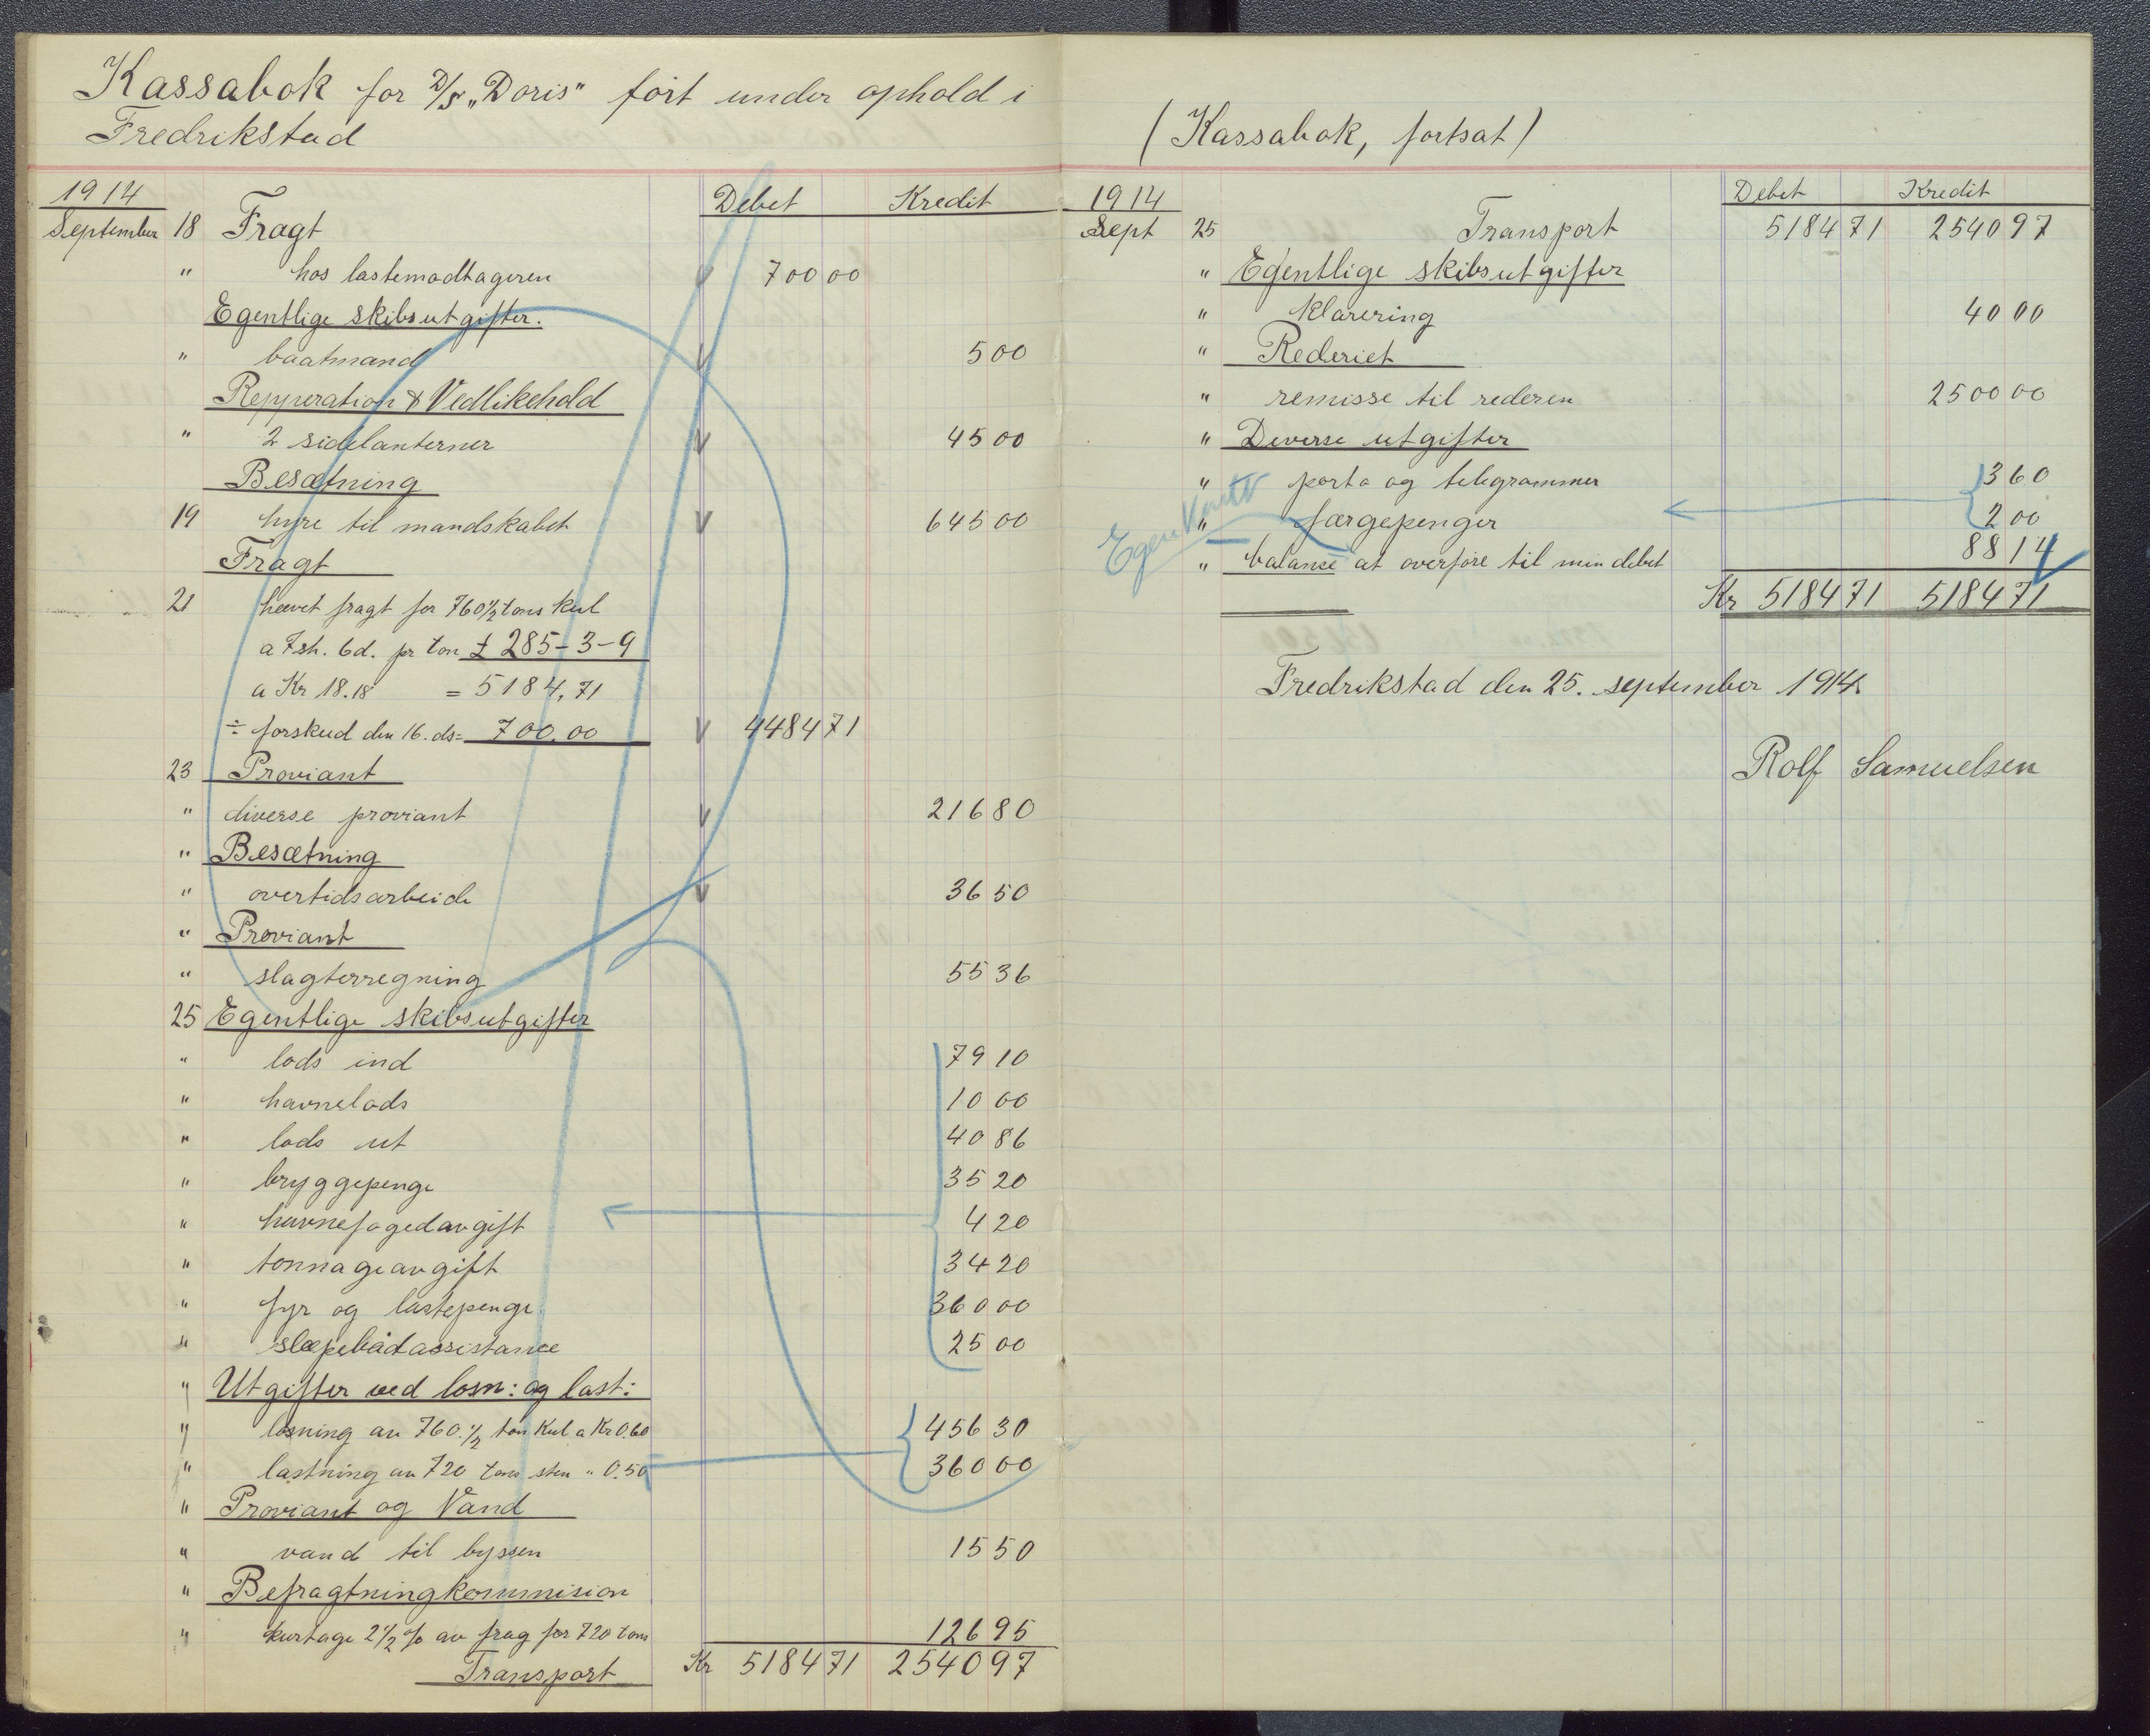 Kassabok for D/S „Doris" ført under ophold i
Fredrikstad
1914 Debet Kredit
September 18 Fragt
" hos lastemodtageren 700 00
Egentlige skibsutgifter.
" baatmand 5 00
Repperation & Vedlikehold
" 2 sidelanterner 45 00
Besætning
19 hyre til mandskabet 645 00
Fragt
21 hævet fragt for 760 1/2 tons kul
a 7sh. 6d. pr ton £ 285-3-9
a Kr 18.18 = 5184,71
÷ forskud den 16. ds= 700.00 4484 71
23 Proviant
" diverse proviant 216 80
" Besætning
" overtidsarbeide 36 50
" Proviant
" slagterregning 55 36
25 Egentlige skibsutgifter
" lods ind 79 10
" havnelods 10 00
" lods ut 40 86
" bryggepenge 35 20
" havnefogedavgift 4 20
" tonnageavgift 34 20
" fyr og lastepenge 360 00
" slæpebådassistance 25 00
" Utgifter ved losn: og last:
" losning av 760. 1/2 ton kul a Kr 0.60 456 30
" lastning av 720 tons sten " 0.50 360 00
" Proviant og Vand
" vand til byssen 15 50
" Befragtningkommision
" kurtage 2 1/2 % av frag for 720 tons 126 95
Transport Kr 5184 71 2540 97
(Kassabok, fortsat)
1914 Debet Kredit
Sept 25 Transport 5184 71 2540 97
" Egentlige skibsutgifter
" klarering 40 00
" Rederiet
" remisse til rederen 2500 00
" Diverse utgifter
" porto og telegrammer 3 60
" færgepenger 2 00
Egen Konto
" balanse at overføre til min debet 88 14
Kr 5184 71 5184 71
Fredrikstad den 25. september 1914.
Rolf Samuelsen